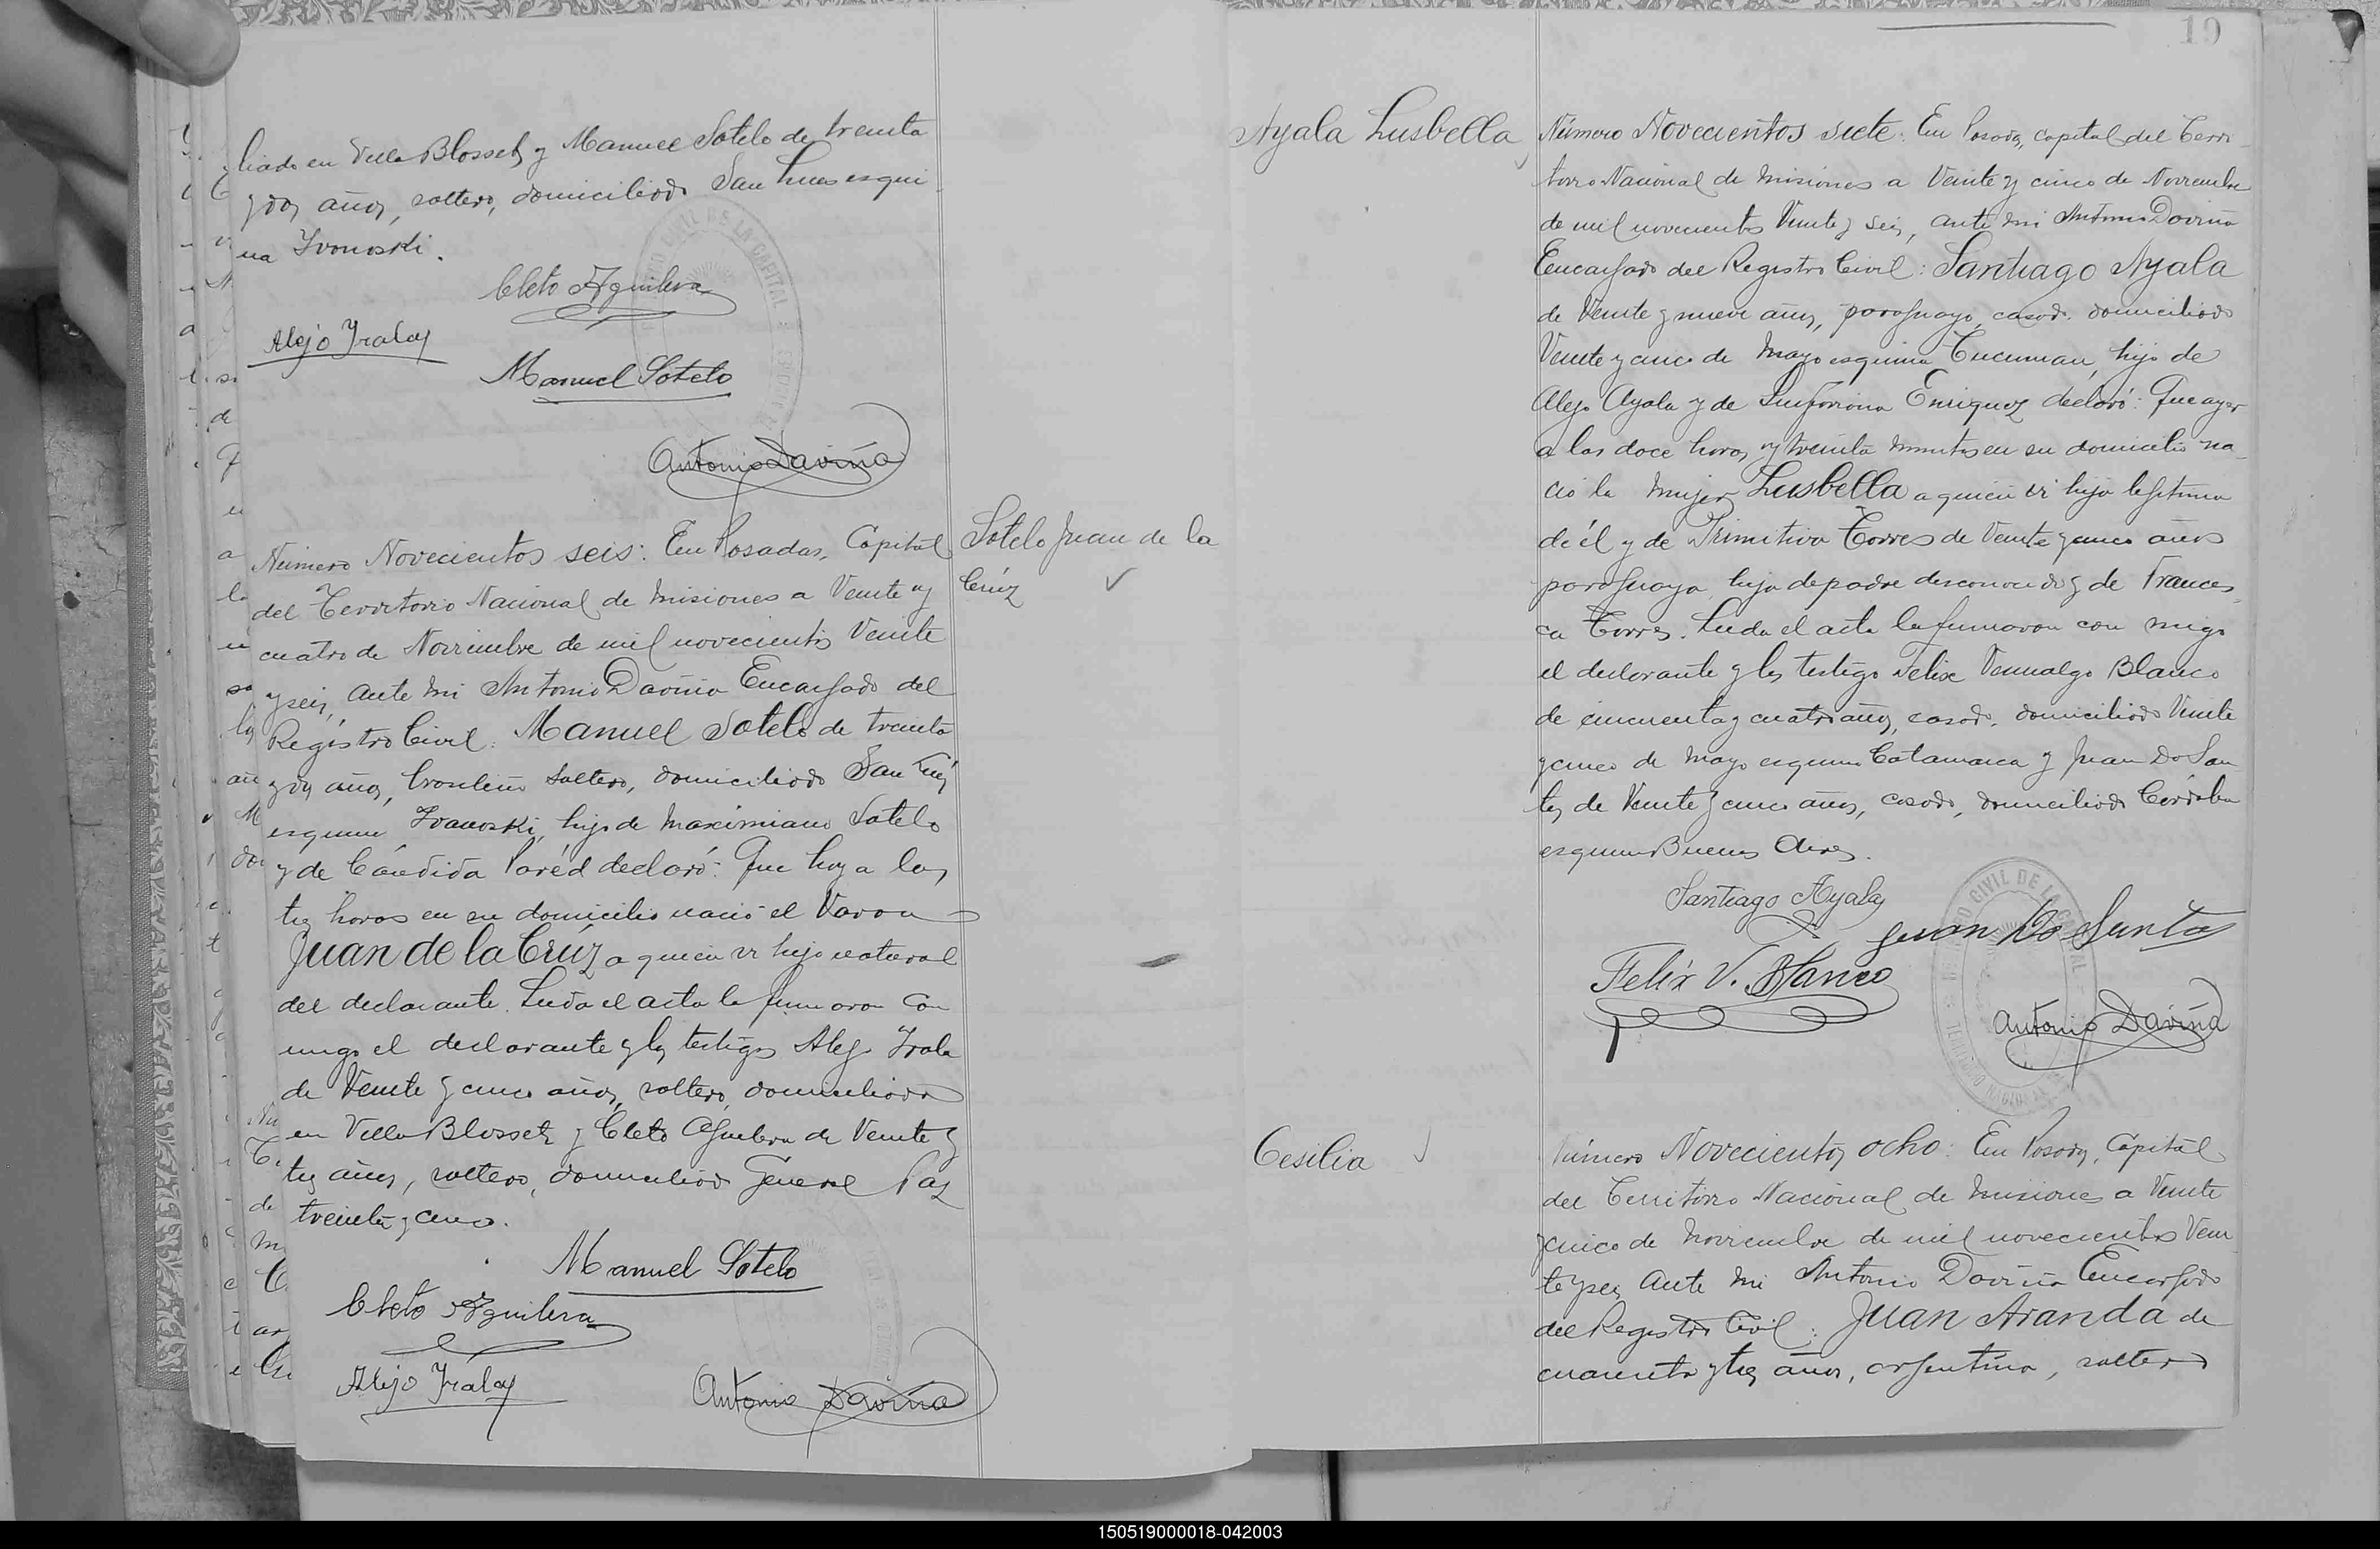 liado en Villa Blosset y Manuel Sotelo de treinta
y dos años, soltero, domiciliado San Luis esqui
na Ivonoski.
Cleto Aguilera
Alejo Irala
Manuel Sotelo
Antonio Daviña
Sotelo Juan de la
Crúz
Número Novecientos seis: En Posadas, Capital
del Territorio Nacional de Misiones a Veinte y
cuatro de Noviembre de mil novecientos Veinte
y seis, ante mi Antonio Daviña Encargado del
Registro Civil: Manuel Sotelo de treinta
y dos años, brasilero soltero, domiciliado San Luis
esquina Ivanoski, hijo de Maximiano Sotelo
y de Cándida Paréd declaró: Que hoy a las
tres horas en su domicilio nació el Varon
Juan de la Crúz a quien vi hijo natural
del declarante. Leida el acta la firmaron con
migo el declarante y los testigos Alejo Irala
de Veinte y cinco años, soltero, domiciliado
en Villa Blosset y Cleto Aguilera de Veinte y
tres años, soltero, domiciliado General Paz
treinta y cinco.
Manuel Sotelo
Cleto Aguilera
Alejo Irala
Antonio Daviña
19
Ayala Lusbella
Número Novecientos siete: En Posadas, capital del Terri
torio Nacional de Misiones a Veinte y cinco de Noviembre
de mil novecientos Veinte y seis, ante mi Antonio Daviña
Encargado del Registro Civil: Santiago Ayala
de Veinte y nueve años, paraguayo, casado, domiciliado
Veinte y cinco de Mayo esquina Tucuman, hijo de
Alejo Ayala y de Sinforiana Enriquez declaró: Que ayer
a las doce horas y treinta minutos en su domicilio na
ció la mujer Lusbella a quien vi hija legitima
de él y de Primitiva Torres de Veinte y cinco años
paraguaya, hija de padre desconocido y de Frances
ca Torres. Leida el acta la firmaron con migo
el declarante y los testigos Felix Venualgo Blanco
de cincuenta y cuatro años, casado, domiciliado Veinte
y cinco de Mayo esquina Catamarca y Juan Do San
tos de Veinte y cinco años, casado, domiciliado Córdoba
esquina Buenos Aires.
Santiago Ayala
Juan Do Santos
Felix V. Blanco
Antonio Daviña
REGISTRO CIVIL DE LA CAPITAL
Cesilia
Número Novecientos ocho: En Posadas, Capital
del Territorio Nacional de Misiones a Veinte
y cinco de Noviembre de mil novecientos Vein
te y seis, ante mi Antonio Daviña Encargado
del Registro Civil: Juan Aranda de
cuarenta y tres años, argentino, soltero
150519000018-042003